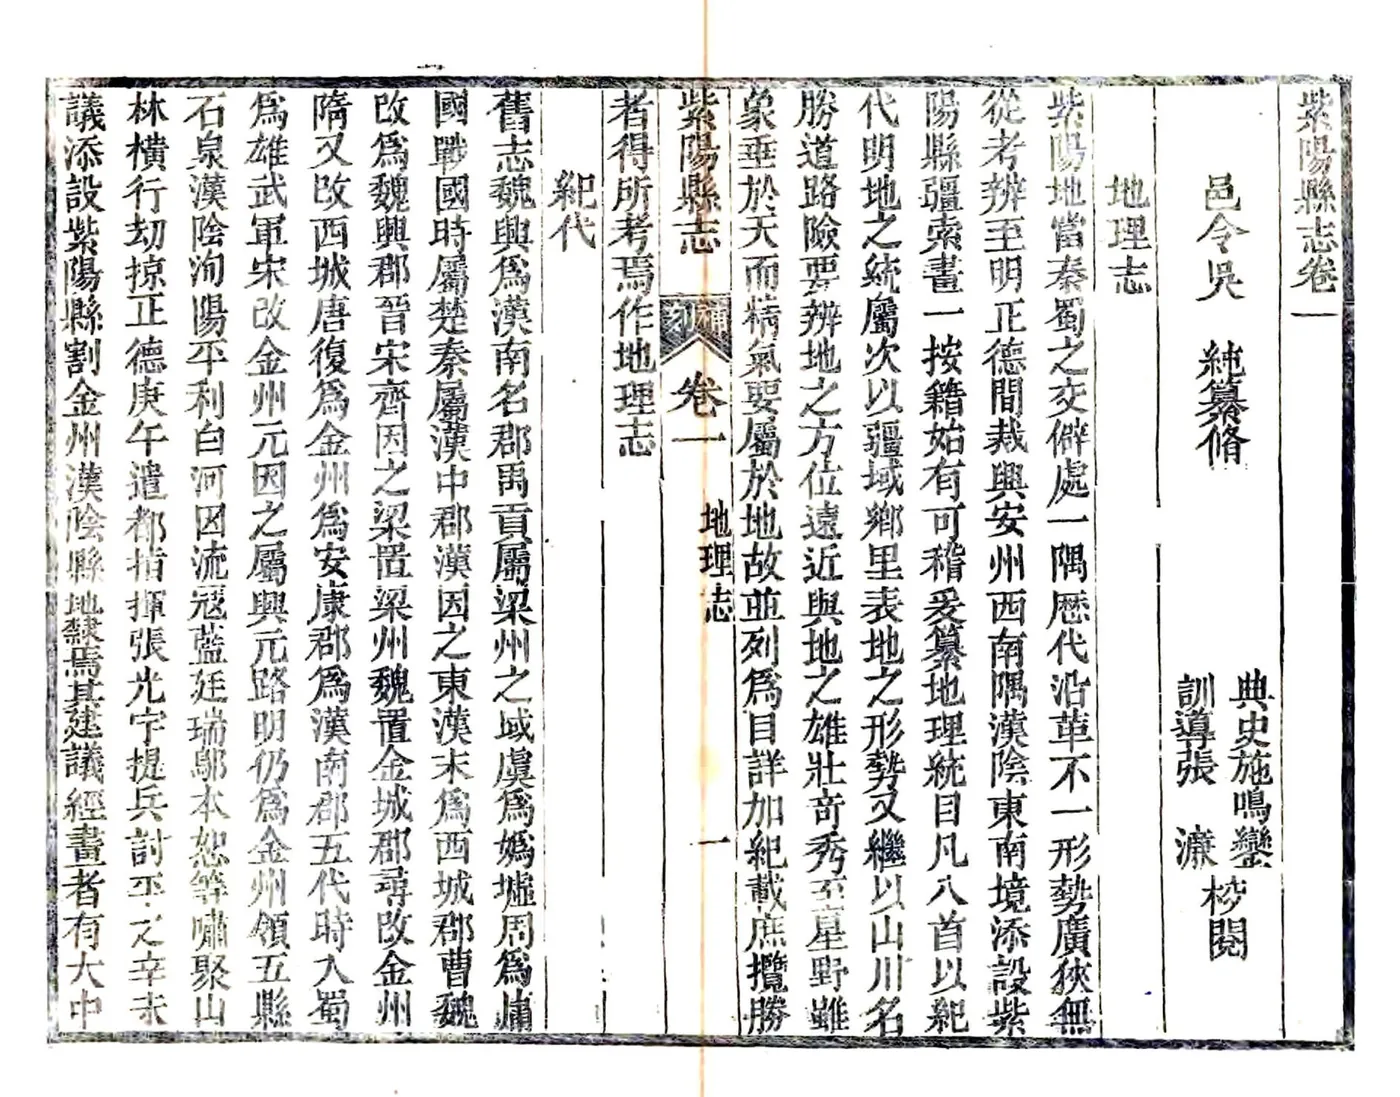 紫陽縣志卷一
邑令吳　純纂修
典史施鳴鑾
訓導張　濂
校閱
地理志
紫陽地當秦蜀之交僻處一隅歷代沿革不一形勢廣狹無
從考辨至明正德間裁興安州西南隅漢陰東南境添設紫
陽縣疆索畫一按籍始有可稽爰纂地理統目凡八首以紀
代明地之統屬次以疆域鄉里表地之形勢又繼以山川名
勝道路險要辨地之方位遠近與地之雄壯竒秀至星野雖
象垂於天而精氣要屬於地故並列爲目詳加紀載庶攬勝
紫陽縣志
補刻
卷一
地理志
一
者得所考焉作地理志
紀代
舊志魏興爲漢南名郡禹貢屬梁州之域虞爲嬀墟周爲庸
國戰國時屬楚秦屬漢中郡漢因之東漢末爲西城郡曹魏
改爲魏興郡晉宋齊因之梁置梁州魏置金城郡尋改金州
隋又改西城唐復爲金州爲安康郡爲漢南郡五代時入蜀
爲雄武軍宋改金州元因之屬興元路明仍爲金州領五縣
石泉漢陰洵陽平利白河因流冦藍廷瑞鄢本恕等嘯聚山
林橫行刧掠正德庚午遣都指揮張光宇提兵討平之辛未
議添設紫陽縣割金州漢陰縣地隸焉其建議經畫者有大中